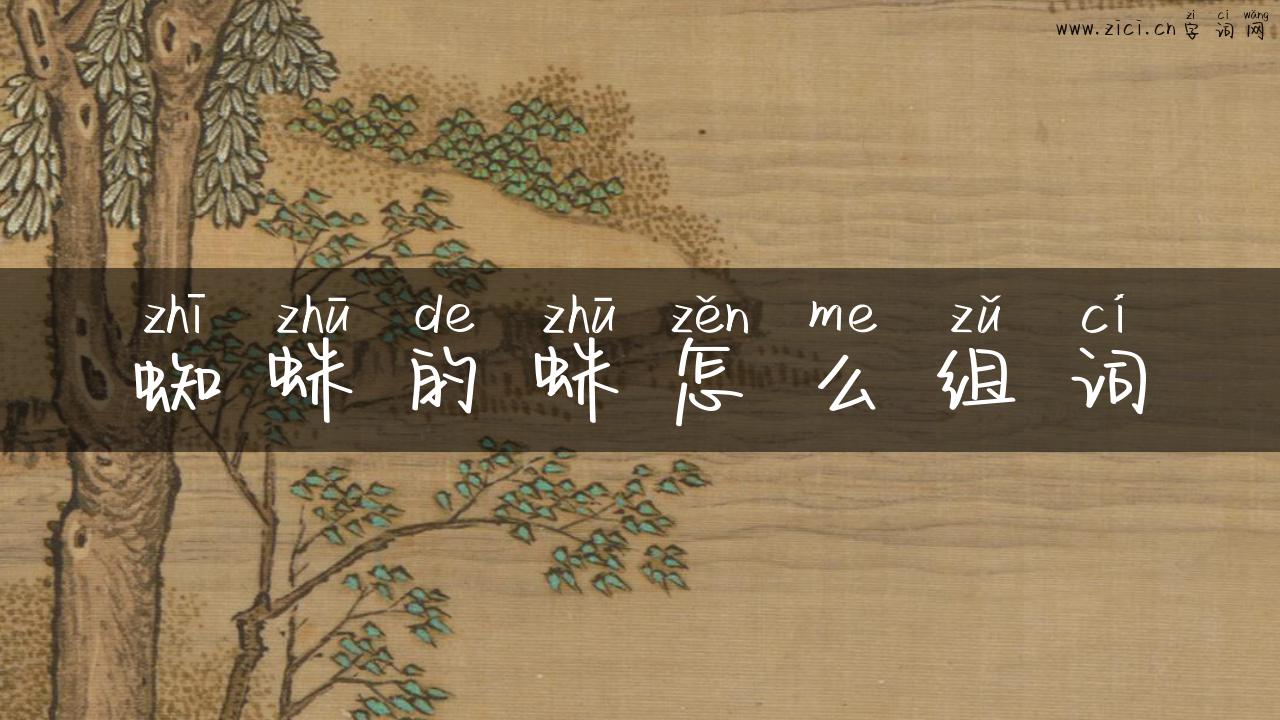 zì cí wǎng
www.zici.cn 字词网
zhī zhū de zhū zěn me zǔ cí
蜘蛛的蛛怎么组词